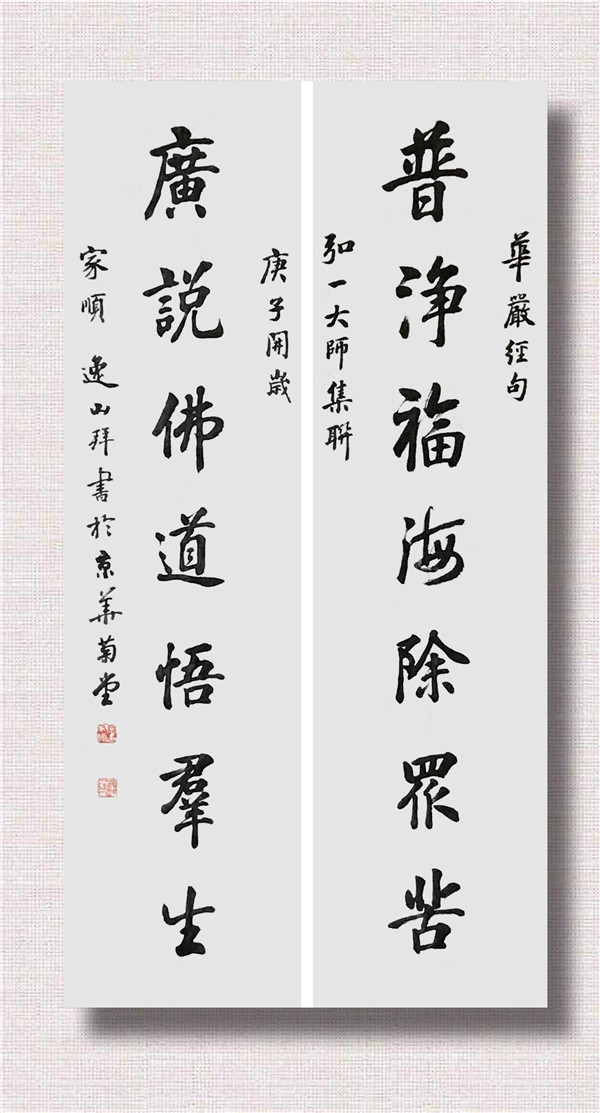 華嚴經句
普淨福海除眾苦
弘一大師集聯
庚子開歲
廣説佛道悟羣生
家順 逸山拜書於京華菊堂